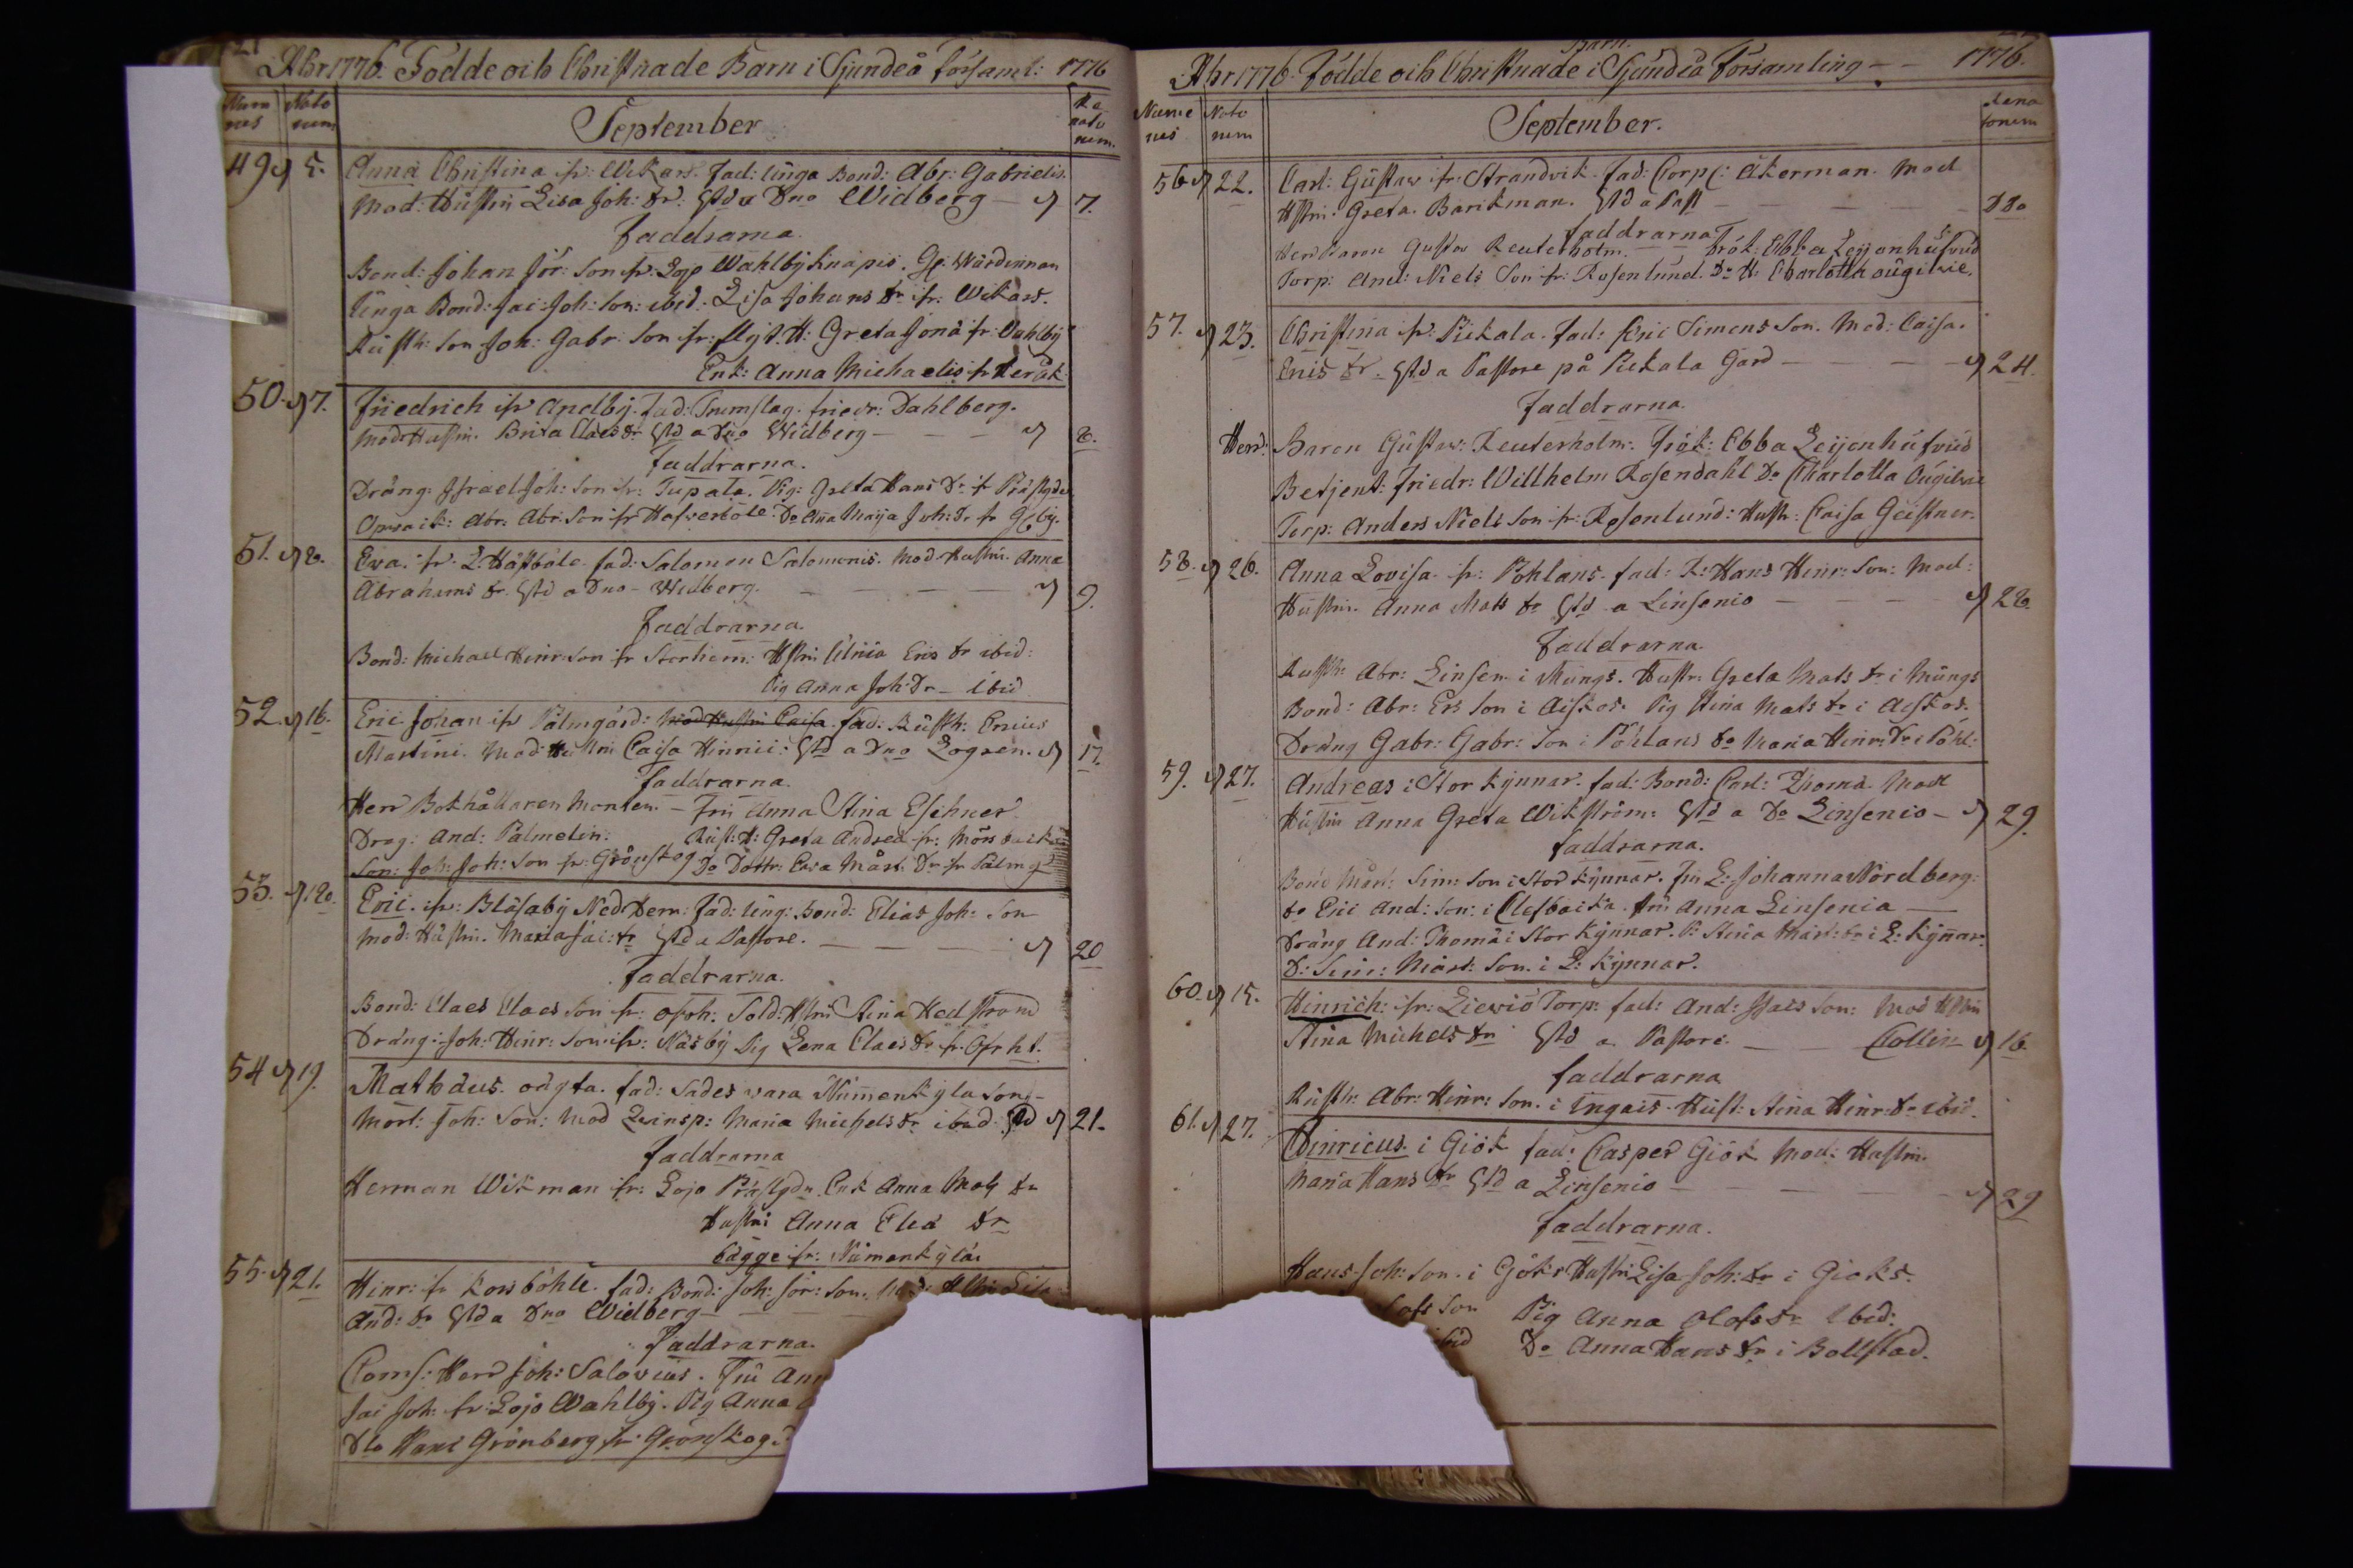 21
Åhr 1776. Födde och Christnade Barn i Sjundeå Församl: 1776
Nume rus
Nato rum
September
Re nato rum.
49 d 5. Anna Christina ifr: Wikars. Fad: Unga Bond: Abr: Gabrielis.
Mod: Hustru Lisa Joh: Dr: Gltd a Dno Widberg — d 7.
Faddrarna.
Bond: Johan Jör: Son fr: Lojo Wahlby Knapis. Gl. Wärdinnan
Unga Bond: Jac: Joh: Son: ibid. Lisa Johans Dr ifr: Wikars.
Rusth: Son Joh: Gabr: Son fr: Flyt. H: Greta Jonæ fr: Vahlby
Enk: Anna Michaelis fr
50. d 7. Friedrich ifr Apelby. Fad: Trumslag: Friedr: Dahlberg.
Mod: Hustru. Brita Claes Dr Gltd a Dno Widberg — — — d 8.
Faddrarna.
Dräng: Israel Joh: Son fr: Tupala. Pig: Greta Hans Dr fr Prästgdn
Abr: Abr: Son fr Hafversböle. Do Anna Maija Joh: Dr fr
51. d 8. Eva. fr. L: Hästböle. Fad: Salomon Salomonis. Mod. Hustru. Anna
Abrahams Dr. Gltd a Dno - Widberg. — — — — d 9.
Faddrarna.
Bond: Michael Hinr: Son fr Storhem: Hstru Ulrica Erics Dr ibid:
Pig Anna Joh: Dr — ibid
52. d 16. Eric Johan ifr Palmgård: Mod Hustru Caisa. Fad: Rusth: Ericus
Martini. Mod: Hustru Caisa Hinrici: Gltd a Dno Logren. d 17.
Faddrarna.
Herr Bokhållaren Monten. — Fru Anna Stina Eschner
Drag: And: Palmelin: Rust: H: Greta Andreæ fr: Mörsbacka
Son: Joh: Joh: Son fr: Grönskog Do Dottr: Eva Mårt: Dr fr Palmg
53. d 18. Eric. ifr: Blåsaby Nedhem: Fad: Ung: Bond: Elias Joh: Son
Mod: Hustru. Maria Jac: Dr Gltd a Pastore. — — — — d 20
Faddrarna.
Bond: Claes Claes Son fr: Sold: Hstru Stina Hedström
Dräng: Joh: Hinr: Son ifr: Näsby Pig Lena Claes Dr fr.
54 d 19. Mathæus. oägta. Fad: Sades vara Nummenkyla Son:
Mårt: Joh: Son: Mod Qvinsp: Maria Michels Dr ibid: Gltd d 21.
Faddrarna
Herman Wikman fr: Lojo Prästgdn. Enk Anna Mats Dr
Hustru Anna Eliæ Dr
bägge ifr: Nummenkylä
55. d 21. Hinr: fr Korsböhle. Fad: Bond: Joh: Jör: Son. Mod: Hstru Lisa
And: Dr Gltd a Dno Widberg —
Faddrarna.
Coms: Herr Joh: Salovius. Fru Ann
Jac Joh: fr: Lojo Wahlby. Pig Anna
Dto Hans Grönberg fr: Grönskog
Barn.
Åhr 1776. Födde och Christnade i Sjundeå Församling — — 1776.
Nume rus
Nato rum
September.
Rena torum
56 d 22. Carl: Gustaw ifr: Strandvik. Fad: Corp: Åkerman. Mod
Hstru: Greta. Barckman. Gltd a Past — — — — Dto
Faddrarna
Herr Baron Gustav Reuterholm. — Frök: Ebba Leijonhufvud
Torp: And: Niels Son fr: Rosenlund. Do H: Charlotta Ougilvie.
57. d 23. Christina ifr: Pikala. Fad: Eric Simons Son. Mod: Caisa.
Erics Dr. Gltd a Pastore på Pickala Gård — — — d 24.
Faddrarna.
Herr: Baron Gustaw: Reuterholm: Frök: Ebba Leijonhufvud
Betjent: Friedr: Willhelm Rosendahl Do Charlotta Ougilvie
Torp: Anders Niels Son fr: Rosenlund: Hustr: Caisa Geistner.
58. d 26. Anna Lovisa. fr: Pohlans. Fad: R: Hans Hinr: Son: Mod:
Hustru. Anna Mats Dr Gltd a Linsenio — — — d 28.
Faddrarna.
Rusth: Abr: Linsen i Mungs. Hustr: Greta Mats Dr i Mungs
Bond: Abr: Ers Son i Aiskos. Pig Stina Mats Dr i Aiskos.
Dräng Gabr: Gabr: Son i Pohlans Do Maria Hinr: Dr i Pohl:
59. d 27. Andreas i Stor Kynnar. Fad: Bond: Carl: Thomæ. Mod
Hustru Anna Greta Wikström: Gltd a Do Linsenio — d 29.
Faddrarna.
Bond Mårt: Sim: Son i Stor Kynnar. Fru L: Johanna Nordberg:
Do Eric And: Son: i Clefbacka. Fru Anna Linsenia —
Dräng And: Thomæ i Stor Kynnar. P: Stina Mårt: Dr i L: Kynnar.
D: Sim: Mårt: Son. i L: Kynnar.
60. d 15. Hinrich: ifr: Liewiö Torp: Fad: And: Son: Mod Hstru
Stina Michels Dr Gltd a. Pastore. — — Collin d 16
Faddrarna
Rusth: Abr: Hinr: Son. i Ingais. Hust: Stina Hinr: Dr ibid.
61. d 27. Hinricus. i Giök Fad: Casper Giök Mod: Hustru.
Maria Hans Dr Gltd a Linsenio — — — — d 29
Faddrarna.
Hans Joh: Son. i Göks Hustru Lisa Joh: Dr i Gioks.
Son Pig Anna Olofs Dr ibid:
ibid Do Anna Hans Dr i Bollstad.